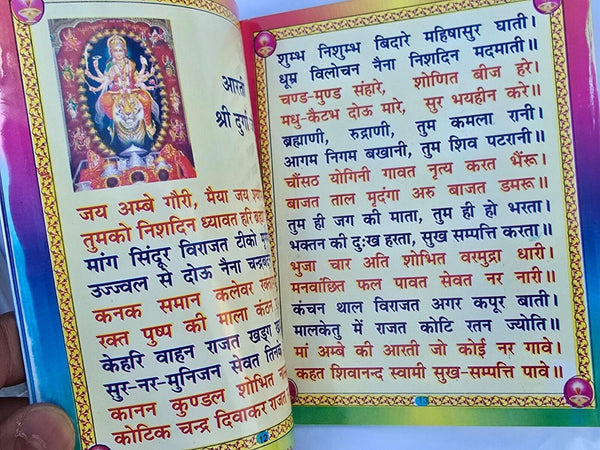 आरती
श्री
जय अम्बे गौरी, मैया जय
तुमको निशदिन ध्यावत हरि
मांग सिंदूर विराजत टीको
उज्ज्वल से दोऊ नैना
कनक समान कलेवर
रक्त पुष्प की माला कंठ
केहरि वाहन राजत खड्ग
सुर-नर-मुनिजन सेवत
कानन कुण्डल शोभित
कोटिक चन्द्र दिवाकर राजत
12
शुम्भ निशुम्भ बिदारे महिषासुर घाती।
धूम्र विलोचन नैना निशदिन मदमाती॥
चण्ड-मुण्ड संहारे, शोणित बीज हरे।
मधु-कैटभ दोऊ मारे, सुर भयहीन करे॥
ब्रह्माणी, रुद्राणी, तुम कमला रानी।
आगम निगम बखानी, तुम शिव पटरानी॥
चौंसठ योगिनी गावत नृत्य करत भैंरू।
बाजत ताल मृदंगा अरु बाजत डमरू॥
तुम ही जग की माता, तुम ही हो भरता।
भक्तन की दुःख हरता, सुख सम्पत्ति करता॥
भुजा चार अति शोभित वरमुद्रा धारी।
मनवांछित फल पावत सेवत नर नारी॥
कंचन थाल विराजत अगर कपूर बाती।
मालकेतु में राजत कोटि रतन ज्योति॥
मां अम्बे की आरती जो कोई नर गावे।
कहत शिवानन्द स्वामी सुख-सम्पत्ति पावे॥
13